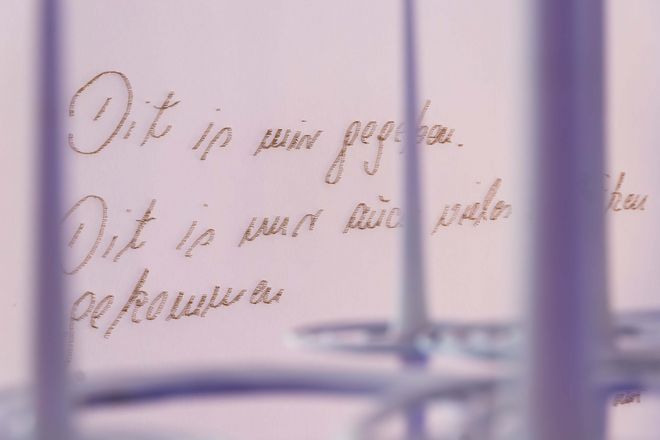 Dit is mir gegeben.
Dit is mir
gekommen